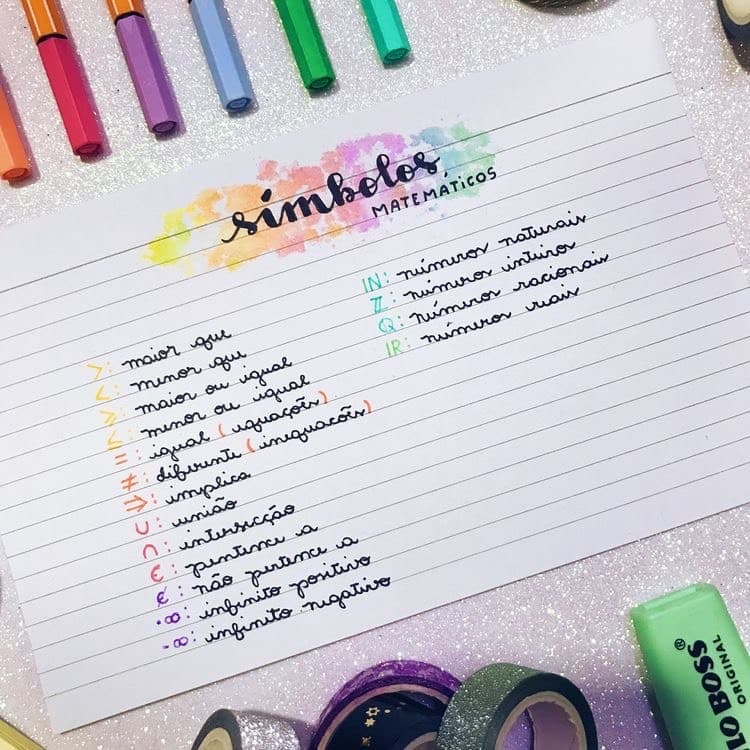 símbolos
MATEMÁTICOS
>: maior que
<: menor que
≥: maior ou igual
≤: menor ou igual
=: igual (iguações)
≠: diferente (inequacões)
⇒: implica
∪: união
∩: intersecção
∈: pertence a
∉: não pertence a
+∞: infinito positivo
-∞: infinito negativo
IN: números naturais
ℤ: números inteiros
Q: números racionais
IR: números reais
LO BOSS®
ORIGINAL